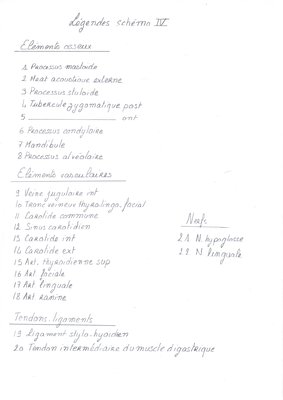 Légendes schéma IV
Eléments osseux
1 Processus mastoïde
2 Meat acoustique externe
3 Processus styloïde
4 Tubercule zygomatique post
5 ____________ int
6 Processus condylaire
7 Mandibule
8 Processus alvéolaire
Eléments vasculaires
9 Veine jugulaire int
10 Tronc veineux thyrolingo-facial
11 Carotide commune
12 Sinus carotidien
13 Carotide int
14 Carotide ext
15 Art. thyroïdienne sup
16 Art faciale
17 Art linguale
18 Art ranine
Nerfs
21 N. hypoglosse
22 N. linguale
Tendons-ligaments
19 ligament stylo-hyoïdien
20 Tendon intermédiaire du muscle digastrique